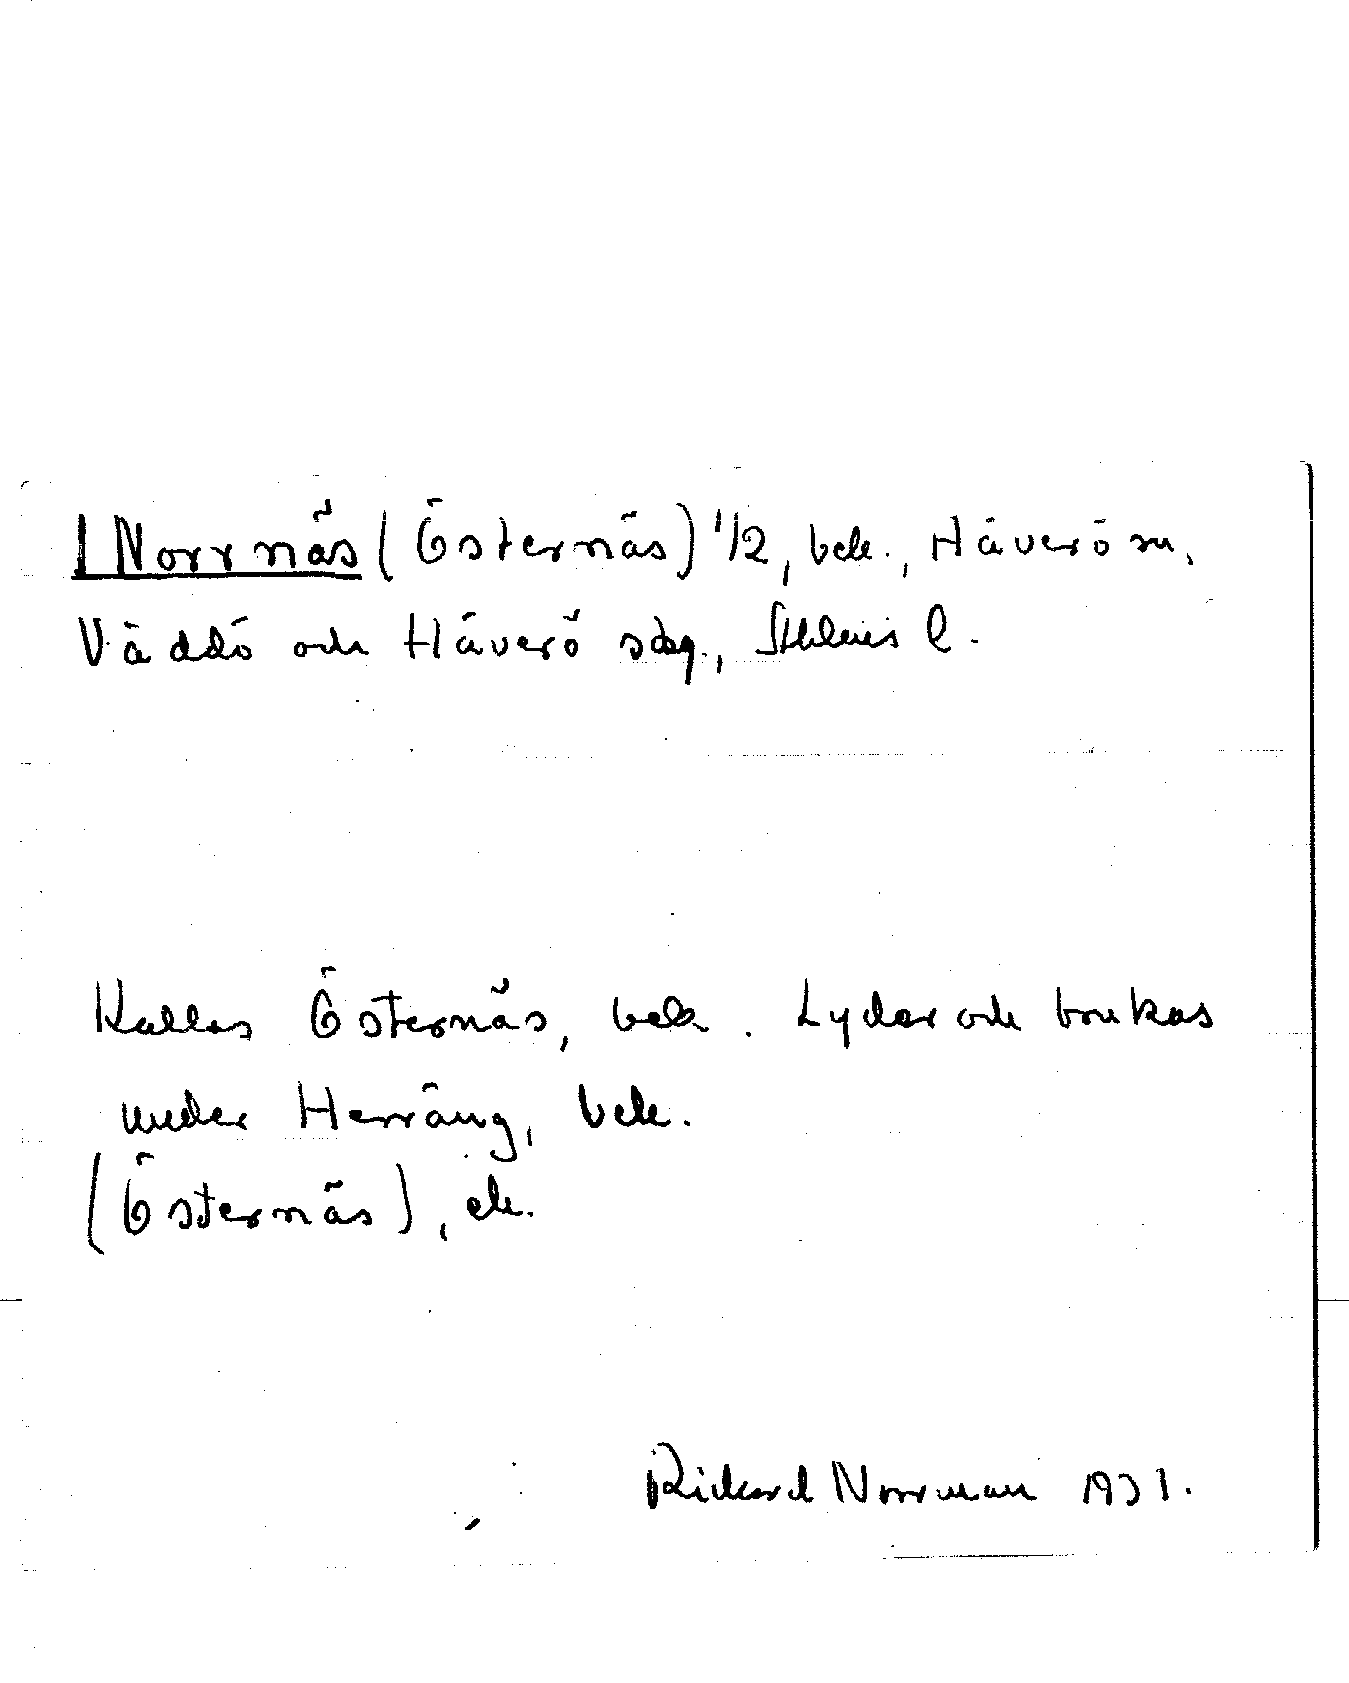 1 Norrnäs (Östernäs) 1/2, bek., Häverö sn,
Väddö och Häverö sdg., Sthlms l.
Kallas Östernäs, bek. Lyder och brukas
under Herräng, bek.
(Östernäs), ek.
Rickard Norrman 1931.